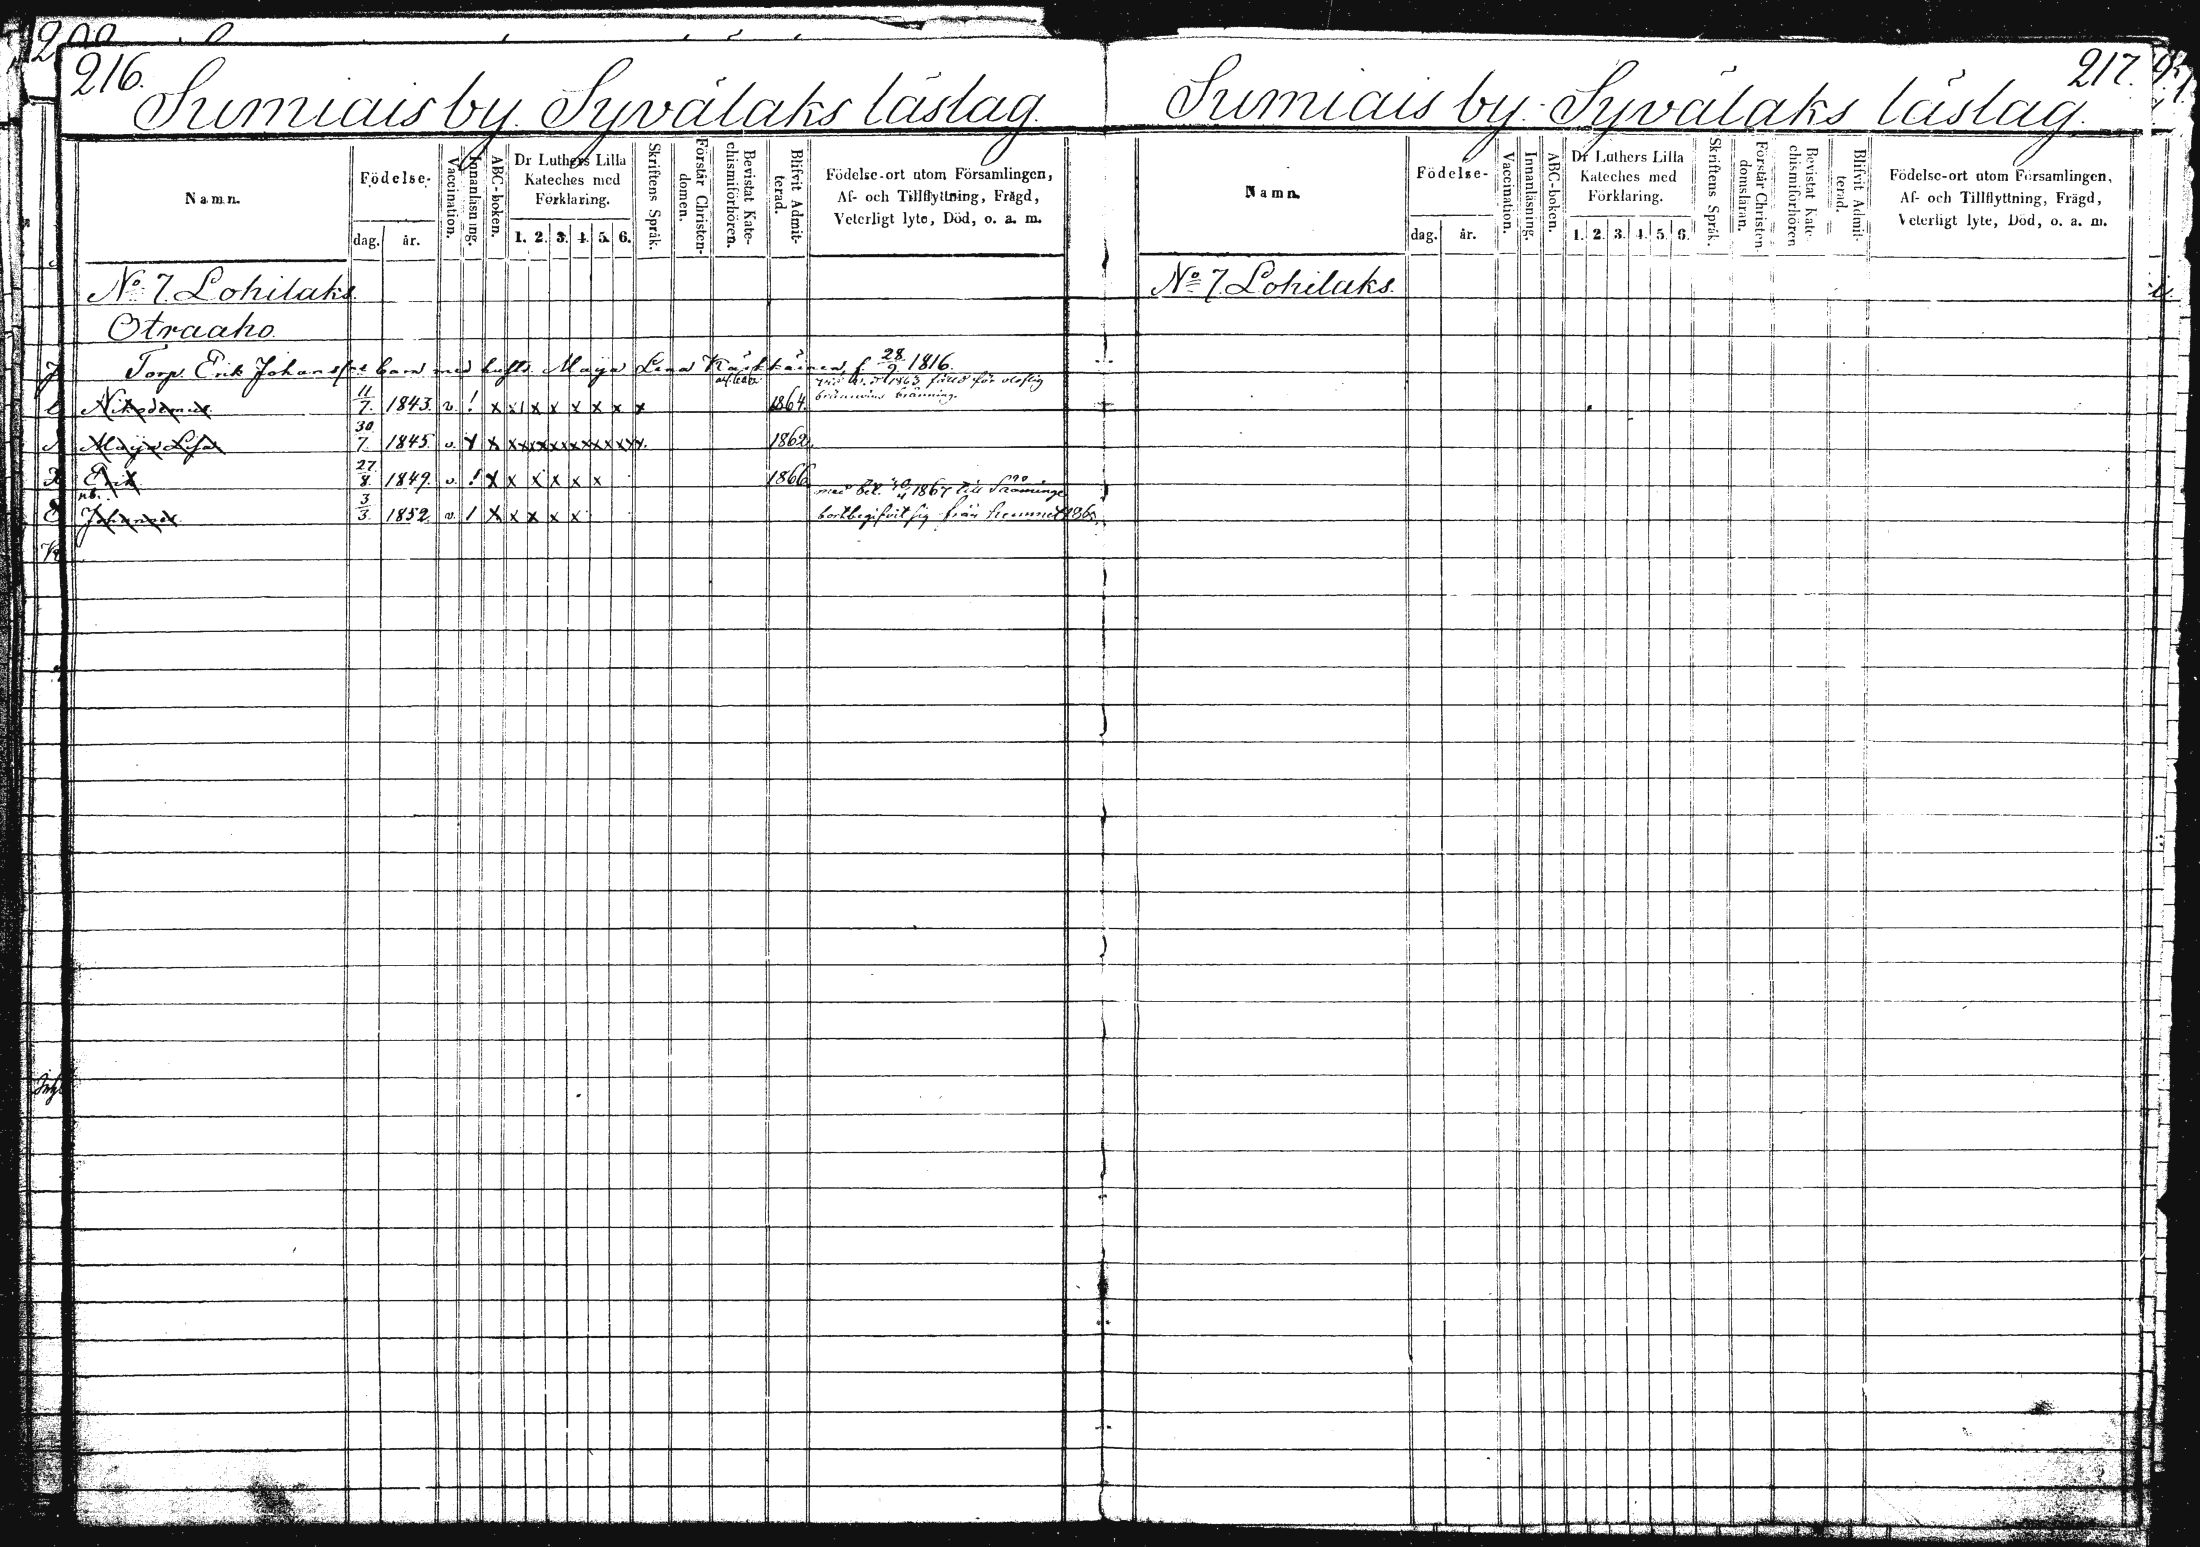 216.
Sumiais by. Syvälaks läslag.
Namn.
Födelse-
dag.
år.
Vaccination.
Innanläsning.
ABC-boken.
Dr Luthers Lilla
Kateches med
Förklaring.
1. 2. 3. 4. 5. 6.
Skriftens Språk.
Förstår Christen-
domen.
Bevistat Kate-
chismiförhören.
Blifvit Admit-
terad.
Födelse-ort utom Församlingen,
Af- och Tillflyttning, Frägd,
Veterligt lyte, Död, o. a. m.
No 7. Lohilaks.
Otraaho.
Torp. Erik Johans barn med hust. Maja Lena Kärkkäinen f. 28/9 1816.
1863 fälld för oloflig
Nikodemus 11/7. 1843. v. ! x x x x x x x x 1864. bränvins bränning.
Maja Lisa 30/7 1845. v. x x x x x x x x x x x x x 1862.
Erik 27/8 1849. v. ! x x x x x x 1866
nb. 1867 till
Johannes 3/3. 1852. v. ! x x x x x bortbegifvit sig från hemmet
217.
Sumiais by. Syvälaks läslag.
Namn.
Födelse-
dag.
år.
Vaccination.
Innanläsning.
ABC-boken.
Dr Luthers Lilla
Kateches med
Förklaring.
1. 2. 3. 4. 5. 6.
Skriftens Språk.
Förstår Christen-
domsläran.
Bevistat Kate-
chismiförhören
Blifvit Admit-
terad.
Födelse-ort utom Församlingen,
Af- och Tillflyttning, Frägd,
Veterligt lyte, Död, o. a. m.
No 7. Lohilaks.